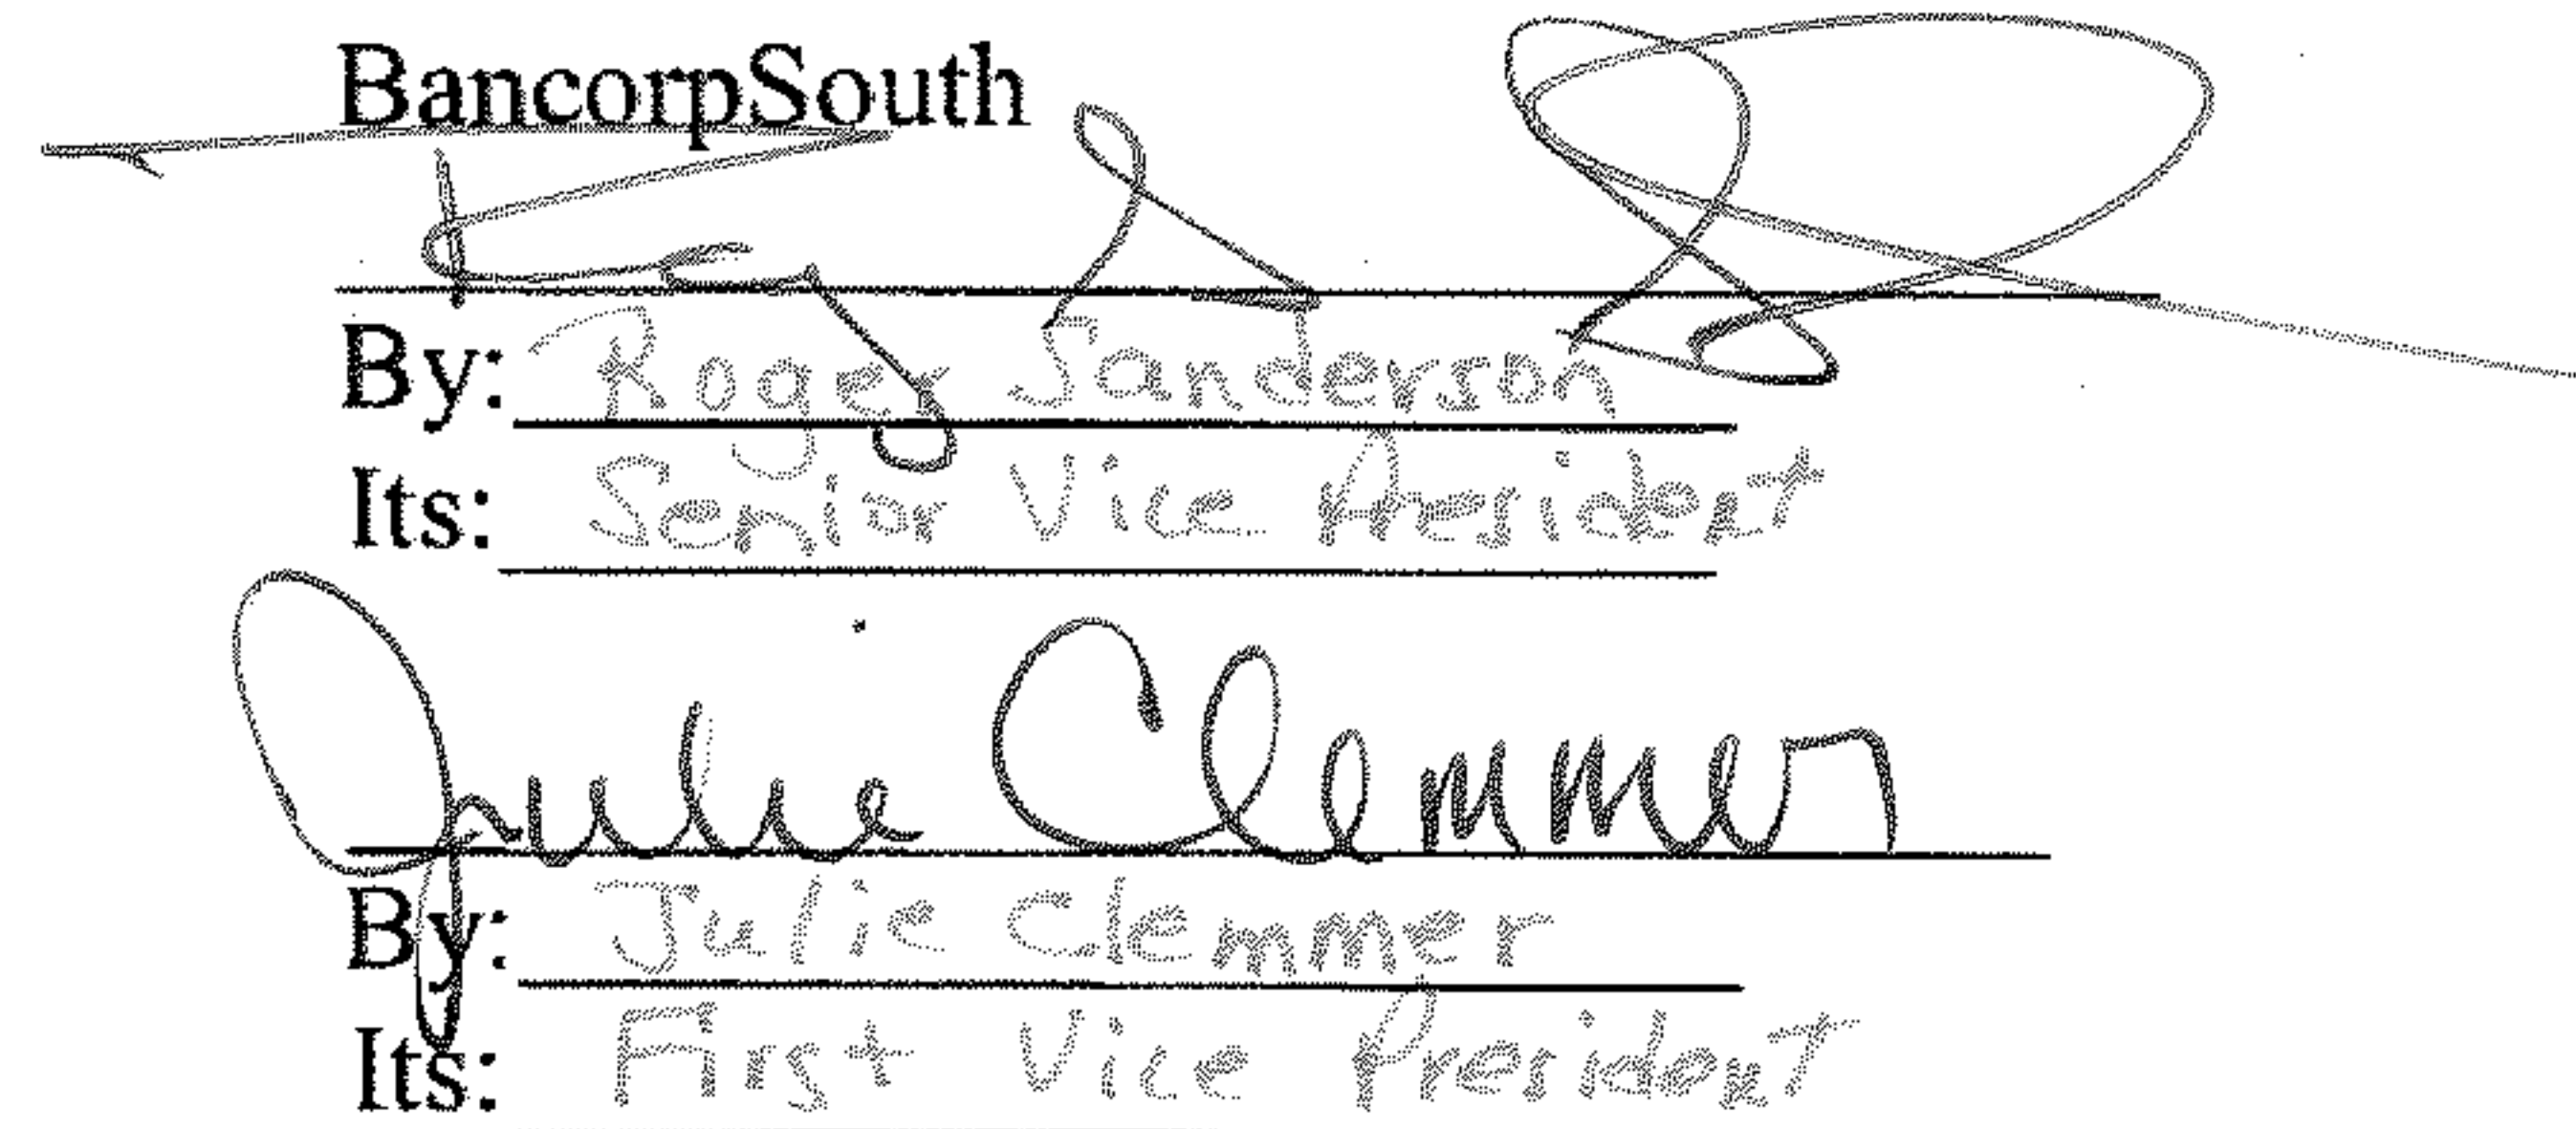 BancorpSouth
By: Roger Sanderson
Its: Senior Vice President
Julie Clemmer
By: Julie Clemmer
Its: First Vice President